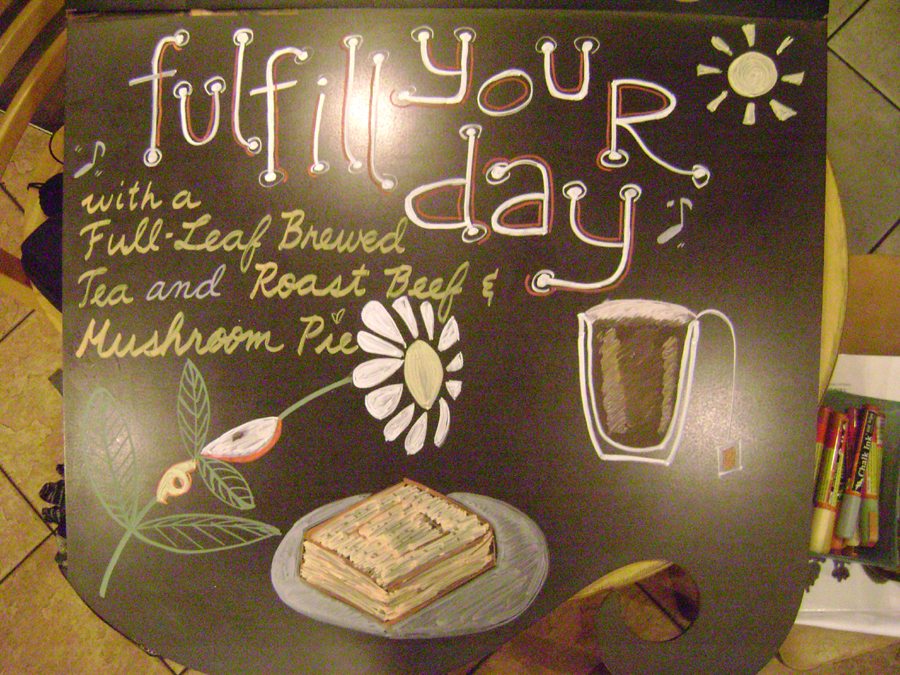 fulfill your
day
with a
Full-Leaf Brewed
Tea and Roast Beef &
Mushroom Pie
Chalk Ink